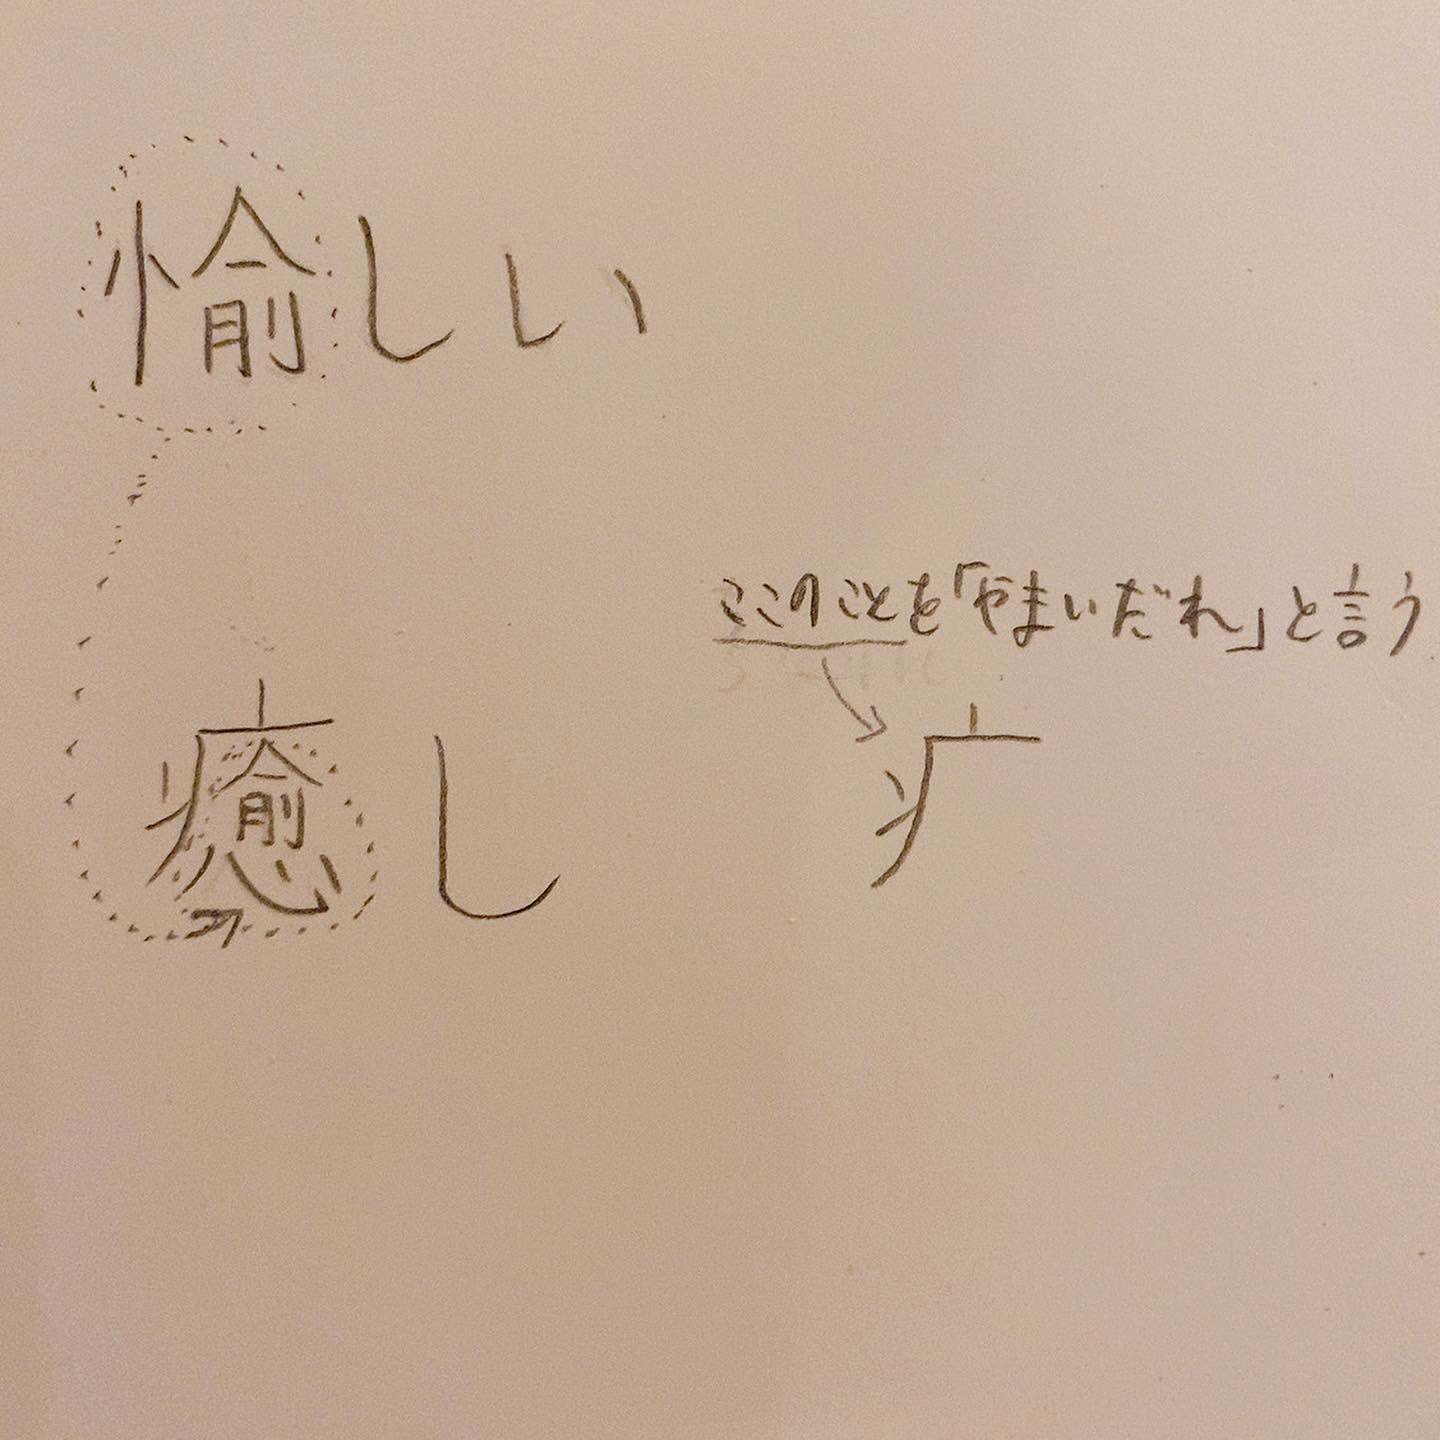 愉しい
ここのことを「やまいだれ」と言う
疒
癒し